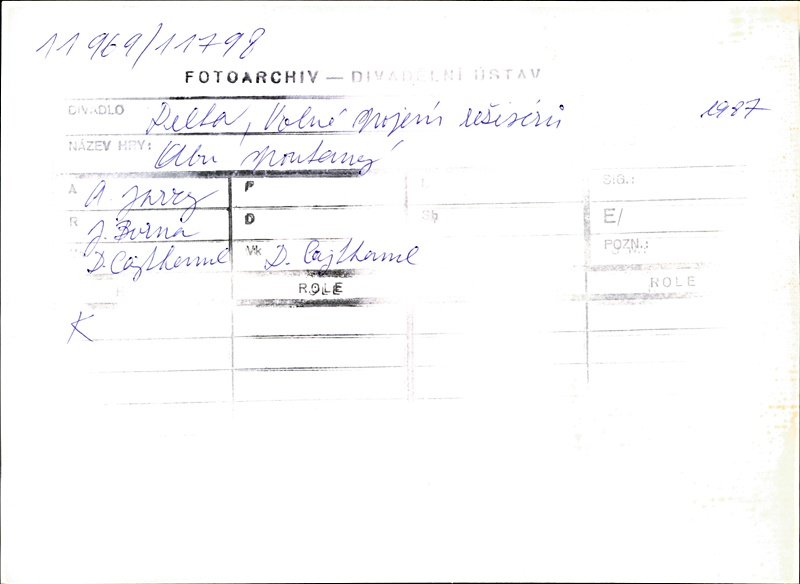 11969/11798
FOTOARCHIV — DIVADELNÍ ÚSTAV
DIVADLO Delta, Volné spojení režisérů 1987
NÁZEV HRY: Ubu spoutaný
A A. Jarry P L SIG.:
R J. Borna D Sb E/
D. Cajthaml Vk D. Cajthaml POZN.:
ROLE ROLE
K